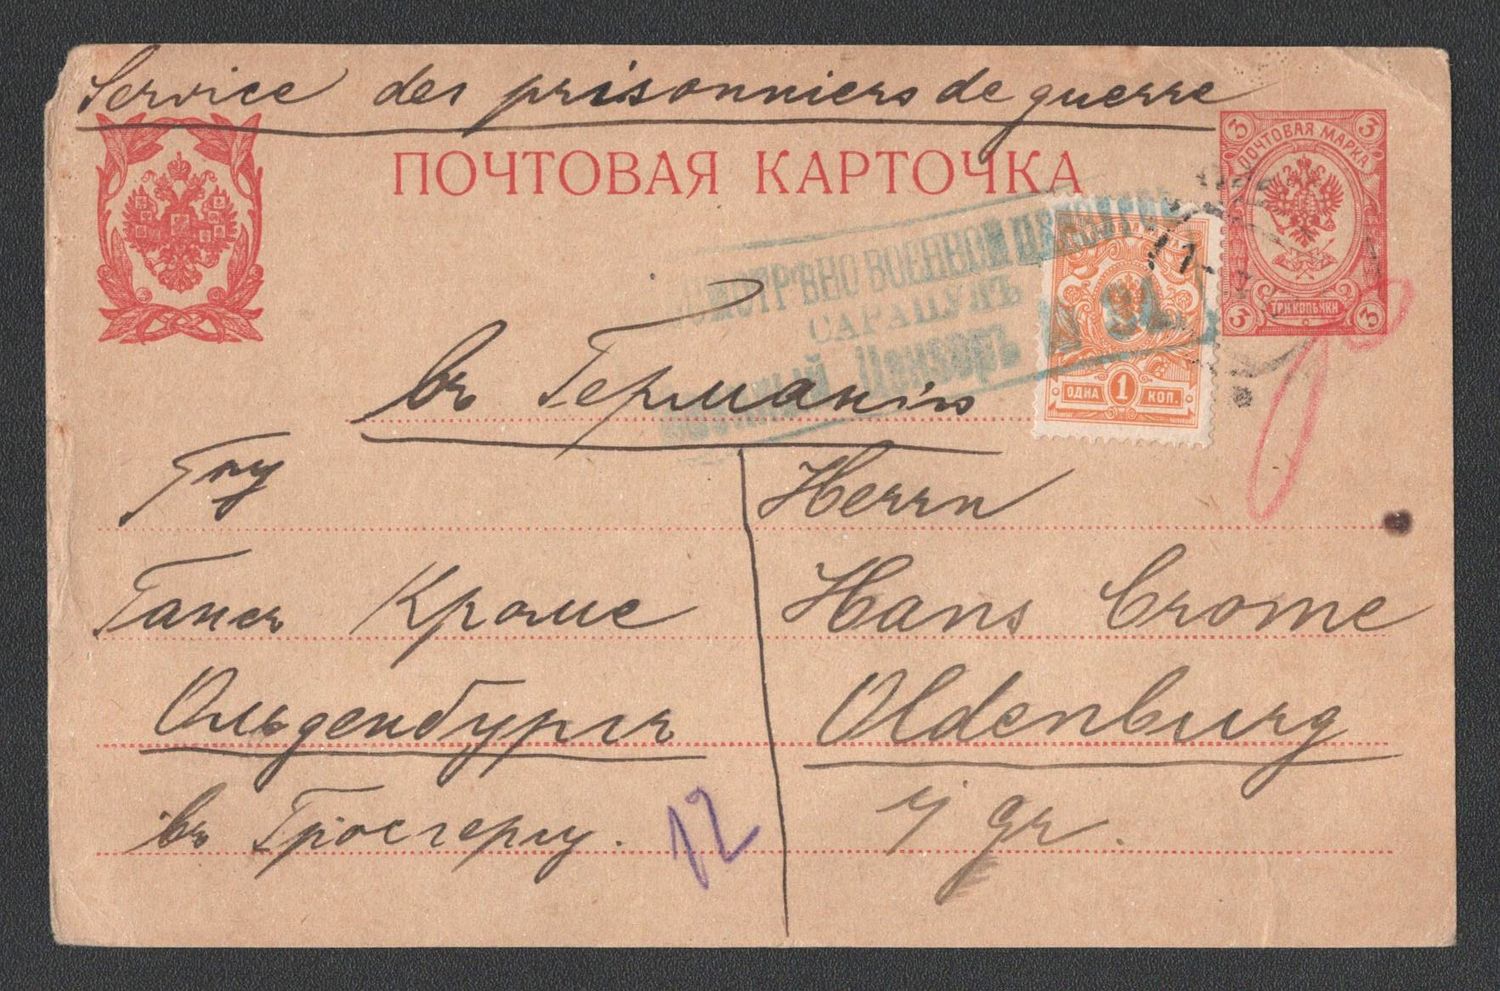 Service des prisonniers de guerre
ПОЧТОВАЯ КАРТОЧКА
3 3
ПОЧТОВАЯ МАРКА
ТРИ КОПѢЙКИ
3 3
ВОЕННОЙ
САРАПУЛЪ
Цензоръ
ОДНА 1 КОП.
въ Германію
Гну
Гансъ Кроме
Ольденбургъ
въ Гросгергц.
Herrn
Hans Crome
Oldenburg
i/gr.
12